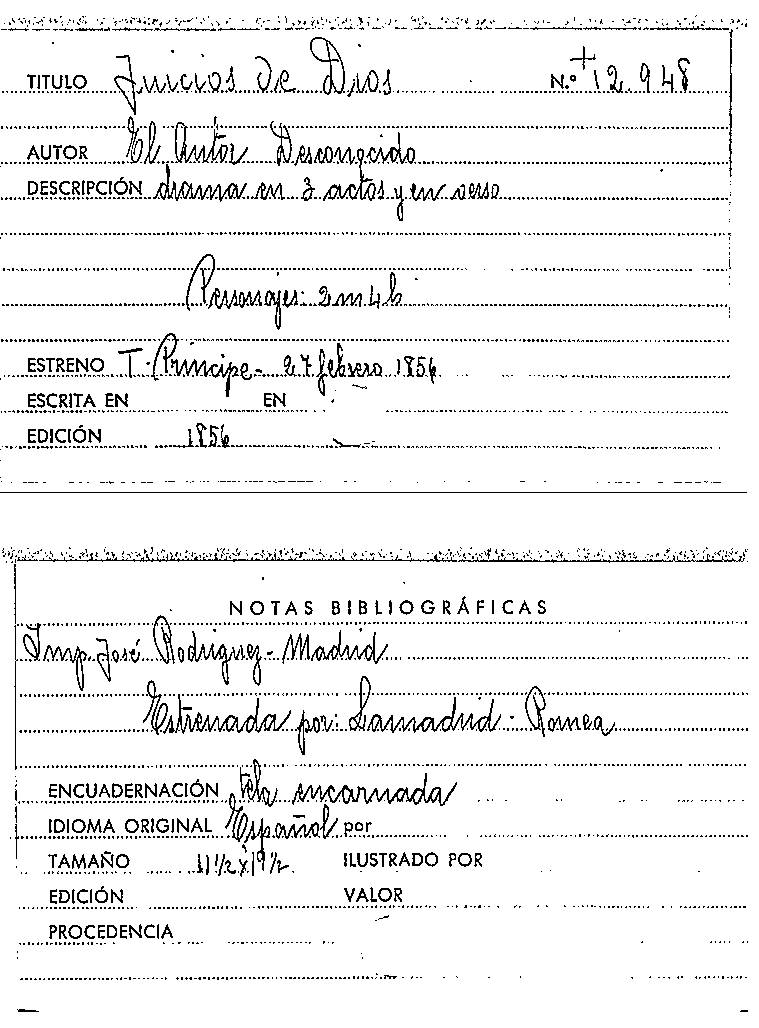 TITULO Juicios de Dios N.º + 12.948
AUTOR El Autor Desconocido
DESCRIPCIÓN drama en 3 actos y en verso
Personajes: 2 m 4 h
ESTRENO T. Príncipe - 27 febrero 1856
ESCRITA EN EN
EDICIÓN 1856
NOTAS BIBLIOGRÁFICAS
Imp. José Rodriguez - Madrid
Estrenada por: Lamadrid - Romea
ENCUADERNACIÓN tela encarnada
IDIOMA ORIGINAL Español por
TAMAÑO 11 1/2 x 19 1/2 ILUSTRADO POR
EDICIÓN VALOR
PROCEDENCIA